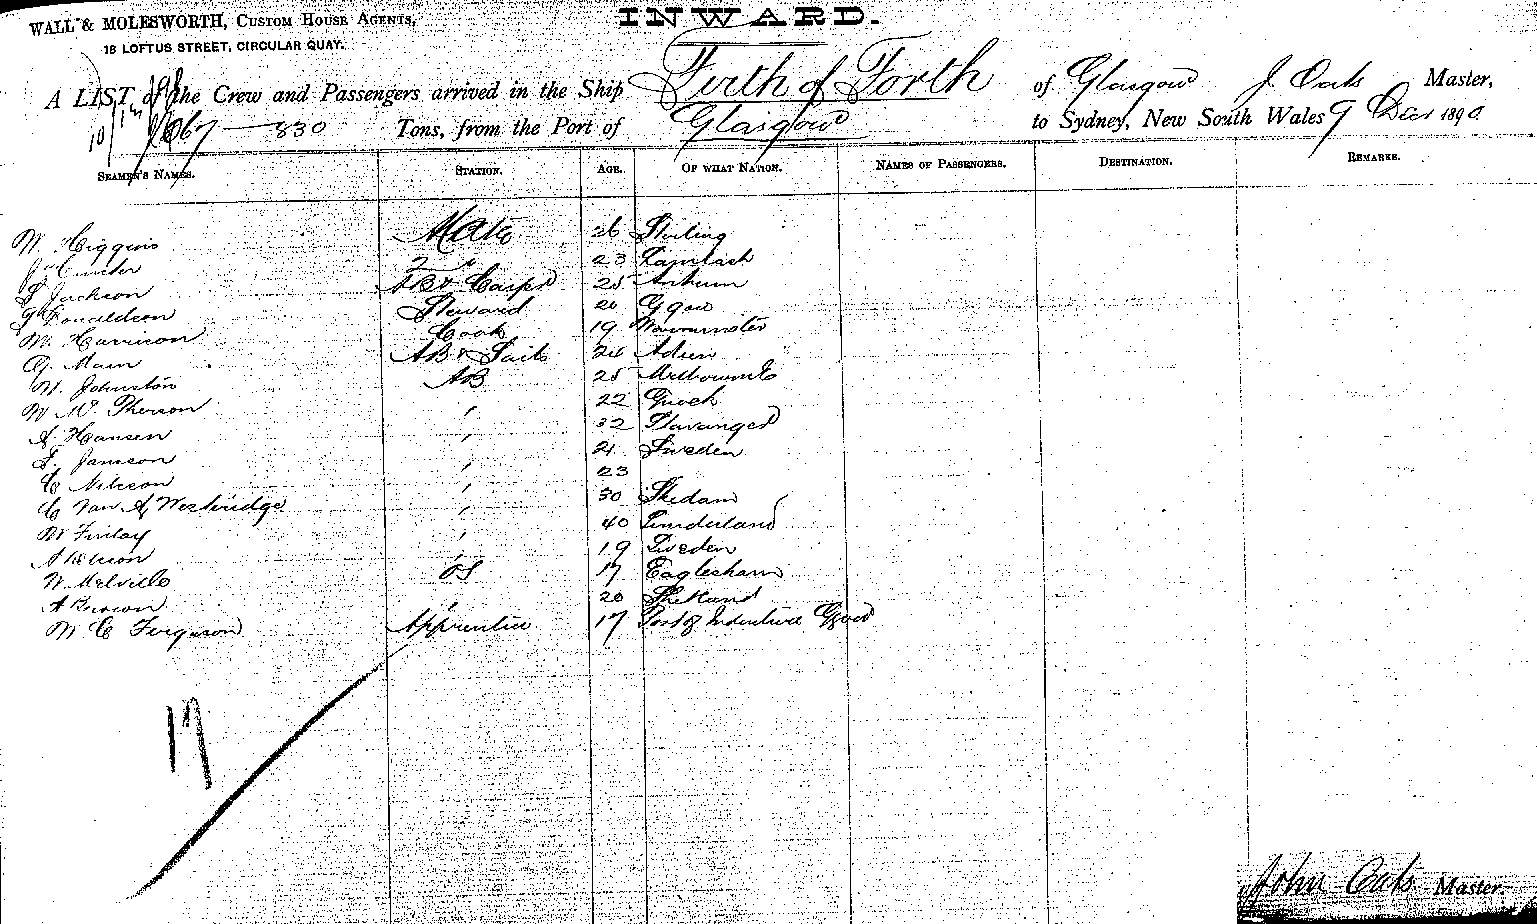 WALL & MOLESWORTH, CUSTOM HOUSE AGENTS,
18 LOFTUS STREET, CIRCULAR QUAY.
INWARD.
A LIST of the Crew and Passengers arrived in the Ship Firth of Forth of Glasgow J. Oats Master,
830 Tons, from the Port of Glasgow to Sydney, New South Wales 9 Decr 1890
SEAMEN'S NAMES. STATION. AGE. OF WHAT NATION. NAMES OF PASSENGERS. DESTINATION. REMARKS.
W. Higgins Mate 26 Stirling
J. Hunter 2 " 23 Lamlash
S Jackson AB & Carpr 25
J Donaldson Steward 20 Ggow
W. Harrison Cook 19 Warminster
G. Main AB & Sails 24
N. Johnston AB 25 Melbourne
W Mc Pherson " 22
A. Hansen " 32 Stavanger
F. Janson " 21 Sweden
C Nilsson " 23
C Van A, " 30 Skedam
W Finlay " 40 Sunderland
" 19 Sweden
W. Melville OS 17 Eaglesham
A Brown " 20 Shetland
W C Ferguson Apprentice 17 Port of Indenture Ggow
17
John Oats Master.